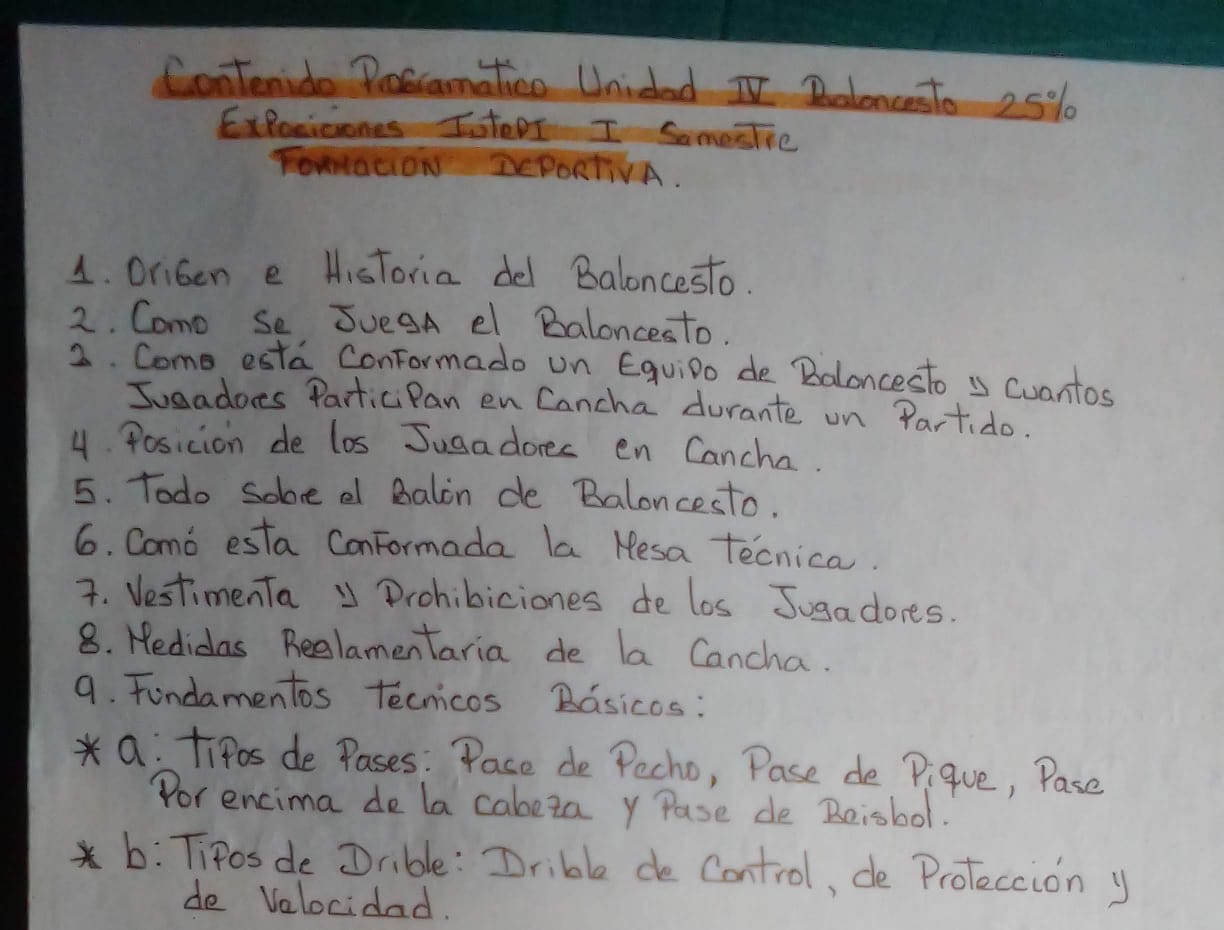 Contenido Programatico Unidad IV Baloncesto 25%
Exposiciones IUTEPI I Semestre
FORMACION DEPORTIVA.
1. Origen e Historia del Baloncesto.
2. Como se Juega el Baloncesto.
3. Como está Conformado un Equipo de Baloncesto y Cuantos
Jugadores Participan en Cancha durante un Partido.
4. Posición de los Jugadores en Cancha.
5. Todo Sobre el Balón de Baloncesto.
6. Comó esta Conformada la Mesa técnica.
7. Vestimenta y Prohibiciones de los Jugadores.
8. Medidas Reglamentaria de la Cancha.
9. Fundamentos técnicos Básicos:
* a: Tipos de Pases: Pase de Pecho, Pase de Pique, Pase
Por encima de la cabeza y Pase de Beisbol.
* b: Tipos de Drible: Drible de Control, de Protección y
de Velocidad.